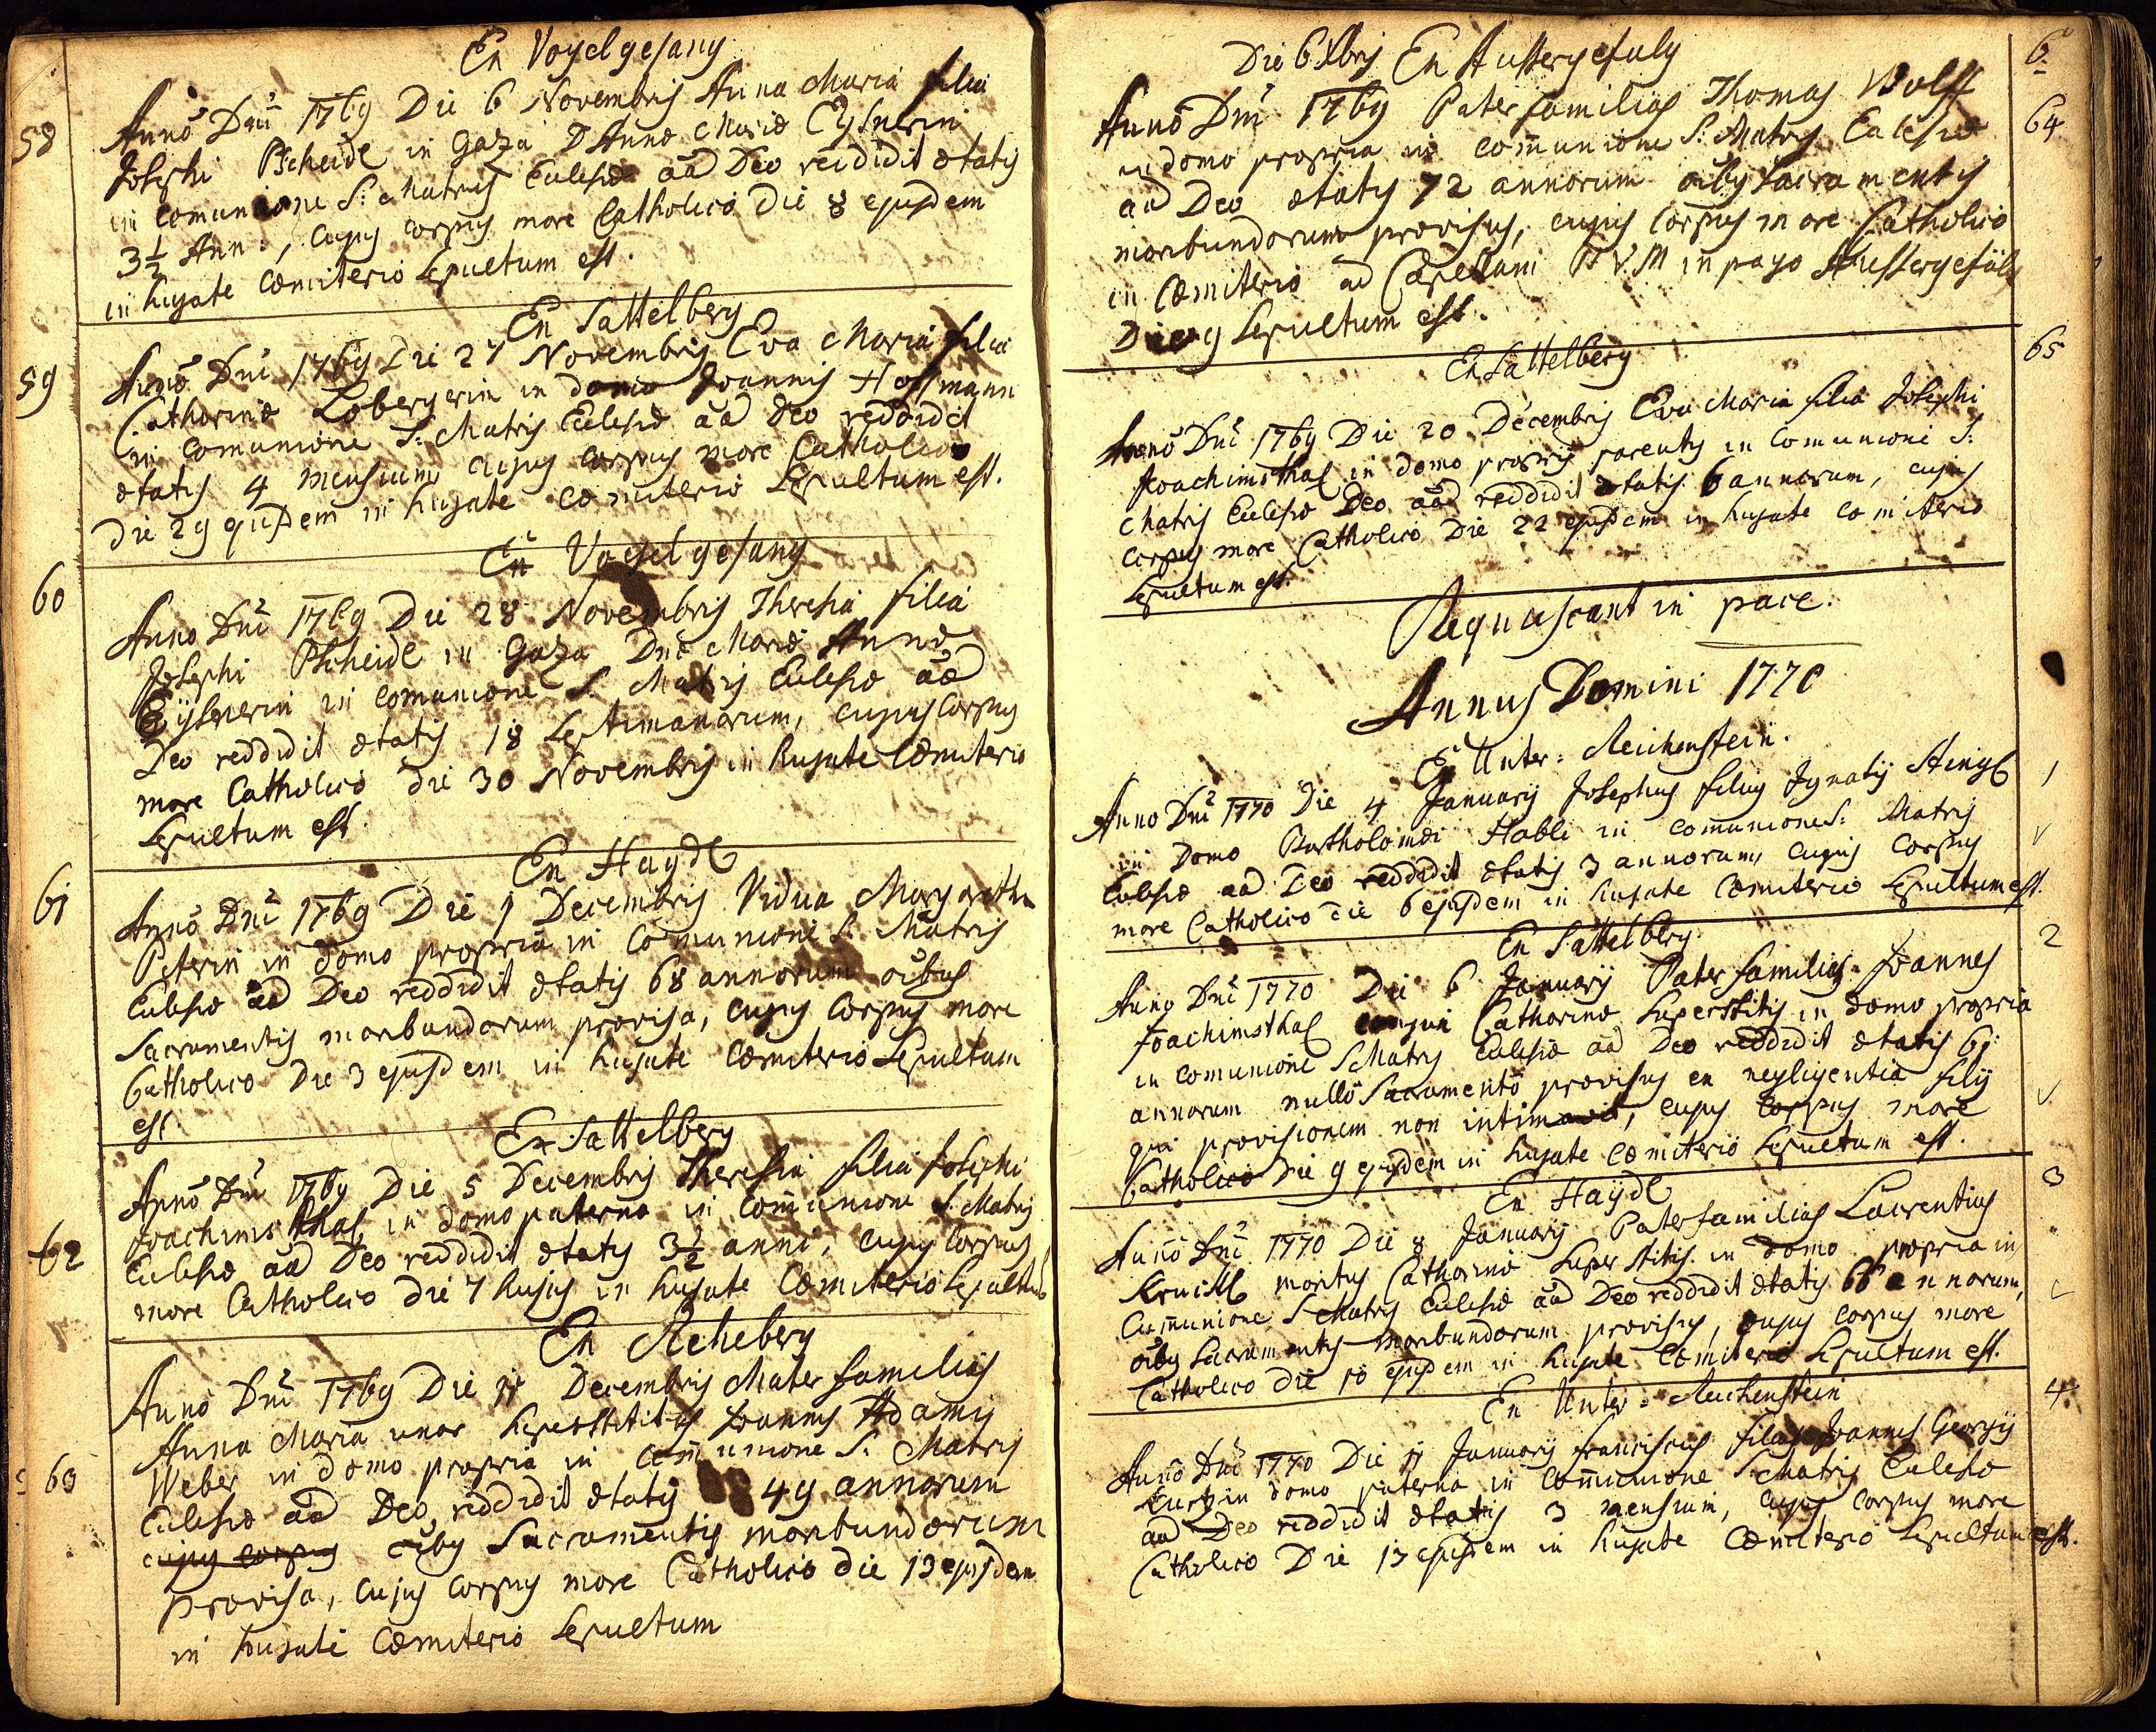 Ex Vogelgesang
58
Anno Dni 1769 Die 6 Novembris Anna Maria filia
Josephi Pscheidl in Gaza D Annæ Mariæ Eysnerin
in comunione S: Matris Eclesiæ aãd Deo reddidit ætatis
3 1/2 Ann:, cujus corpus more Catholico die 8 ejusdem
in hujate Cœmiterio Sepultum est.
Ex Sattelberg
59
Anno Dni 1769 Die 27 Novembris Eva Maria filia
Catharinæ Lobergerin in domo Joannis Hoffmann
in comunione S: Matris Eclesiæ aãd Deo reddidit
ætatis 4 mensium cujus corpus more Catholico
die 29 ejusdem in hujate cœmiterio Sepultum est.
Ex Vogelgesang
60
Anno Dni 1769 Die 28 Novembris Theresia filia
Josephi Pscheidl in Gaza Dnæ Mariæ Annæ
Eÿsnerin in comunione S. Matris Eclesiæ aãd
Deo reddidit ætatis 18 Septimanarum, cujus corpus
more Catholico die 30 Novembris in hujate Cœmiterio
Sepultum est.
Ex Haydl
61
Anno Dni 1769 Die 1 Decembris Vidua Margaretha
Peterin in domo propria in comunione S. Matris
Eclesiæ aãd Deo reddidit ætatis 68 annorum oibus
Sacramentis moribundorum provisa, cujus corpus more
Catholico Die 3 ejusdem in hujate cœmiterio Sepultum
est
Ex Sattelberg
62
Anno Dni 1769 Die 5 Decembris Theresia filia Josephi
Joachimsthal in domo paterna in Comunione S. Matris
Eclesiæ aãd Deo reddidit ætatis 3 1/2 anni, cujus corpus
more Catholico die 7 hujus in hujate Cœmiterio Sepultum
Ex Reheberg
63
Anno Dni 1769 Die 11 Decembris Mater familias
Anna Maria uxor Superstitis Joannis Adami
Weber in domo propria in comunione S. Matris
Eclesiæ aãd Deo reddidit ætatis 49 annorum
cujus corpus oibus Sacramentis moribundorum
provisa, cujus corpus more Catholico die 13 ejusdem
in hujate Cœmiterio Sepultum
Die 6 Xbris Ex Aussergefuld
64
Anno Dni 1769 Pater familias Thomas Wolff
in domo propria in comunione S: Matris Eclesiæ
aãd Deo ætatis 72 annorum oibus Sacramentis
moribundorum provisus, cujus corpus more Catholico
in Cœmiterio ad Capellam BVM in pago Aussergefüld
Die 9 Sepultum est.
Ex Sattelberg
65
Anno Dni 1769 Die 20 Decembris Eva Maria filia Josephi
Joachimsthal in domo propriis parentis in Comunione S:
Matris Eclesiæ Deo aãd reddidit ætatis 6 annorum, cujus
corpus more Catholico Die 22 ejusdem in hujate comiterio
Sepultum est.
Requiescant in pace.
Annus Domini 1770
Ex Unter: Reichenstein.
1
Anno Dni 1770 Die 4 Januarÿ Josephus filius Ignatÿ Stingl
in Domo Bartholomæi Habli in comunione S: Matris
Eclesiæ aãd Deo reddidit ætatis 3 annorum, cujus corpus
more Catholico die 6 ejusdem in hujate Cœmiterio Sepultum est.
Ex Sattelberg
2
Anno Dni 1770 Die 6 Januarÿ Pater familias Joannes
Joachimsthal conjux Catharinæ Superstitis in domo propria
in comunione S Matris Eclesiæ aãd Deo reddidit ætatis 61
annorum nullo Sacramento provisus ex negligentia filÿ
qui provisionem non intimavit, cujus corpus more
Catholico Die 9 ejusdem in hujate Cœmiterio Sepultum est.
Ex Haÿdl
3
Anno Dni 1770 Die 8 Januarÿ Pater familias Laurentius
maritus Catharinæ Superstitis in domo propria in
Cumunione S Matris Eclesiæ aãd Deo reddidit ætatis 66 annorum,
oibus Sacramentis moribundorum provisus, cujus corpus more
Catholico die 10 ejusdem in hujate Cœmiterio Sepultum est.
Ex Unter: Reichenstein
4
Anno Dni 1770 Die 11 Januarÿ Franciscus filius Joannis Georgÿ
Kurtz in domo paterna in Comunione S: Matris Eclesiæ
aãd Deo reddidit ætatis 3 mensium, cujus corpus more
Catholico Die 13 ejusdem in hujate Cœmiterio Sepultum est.